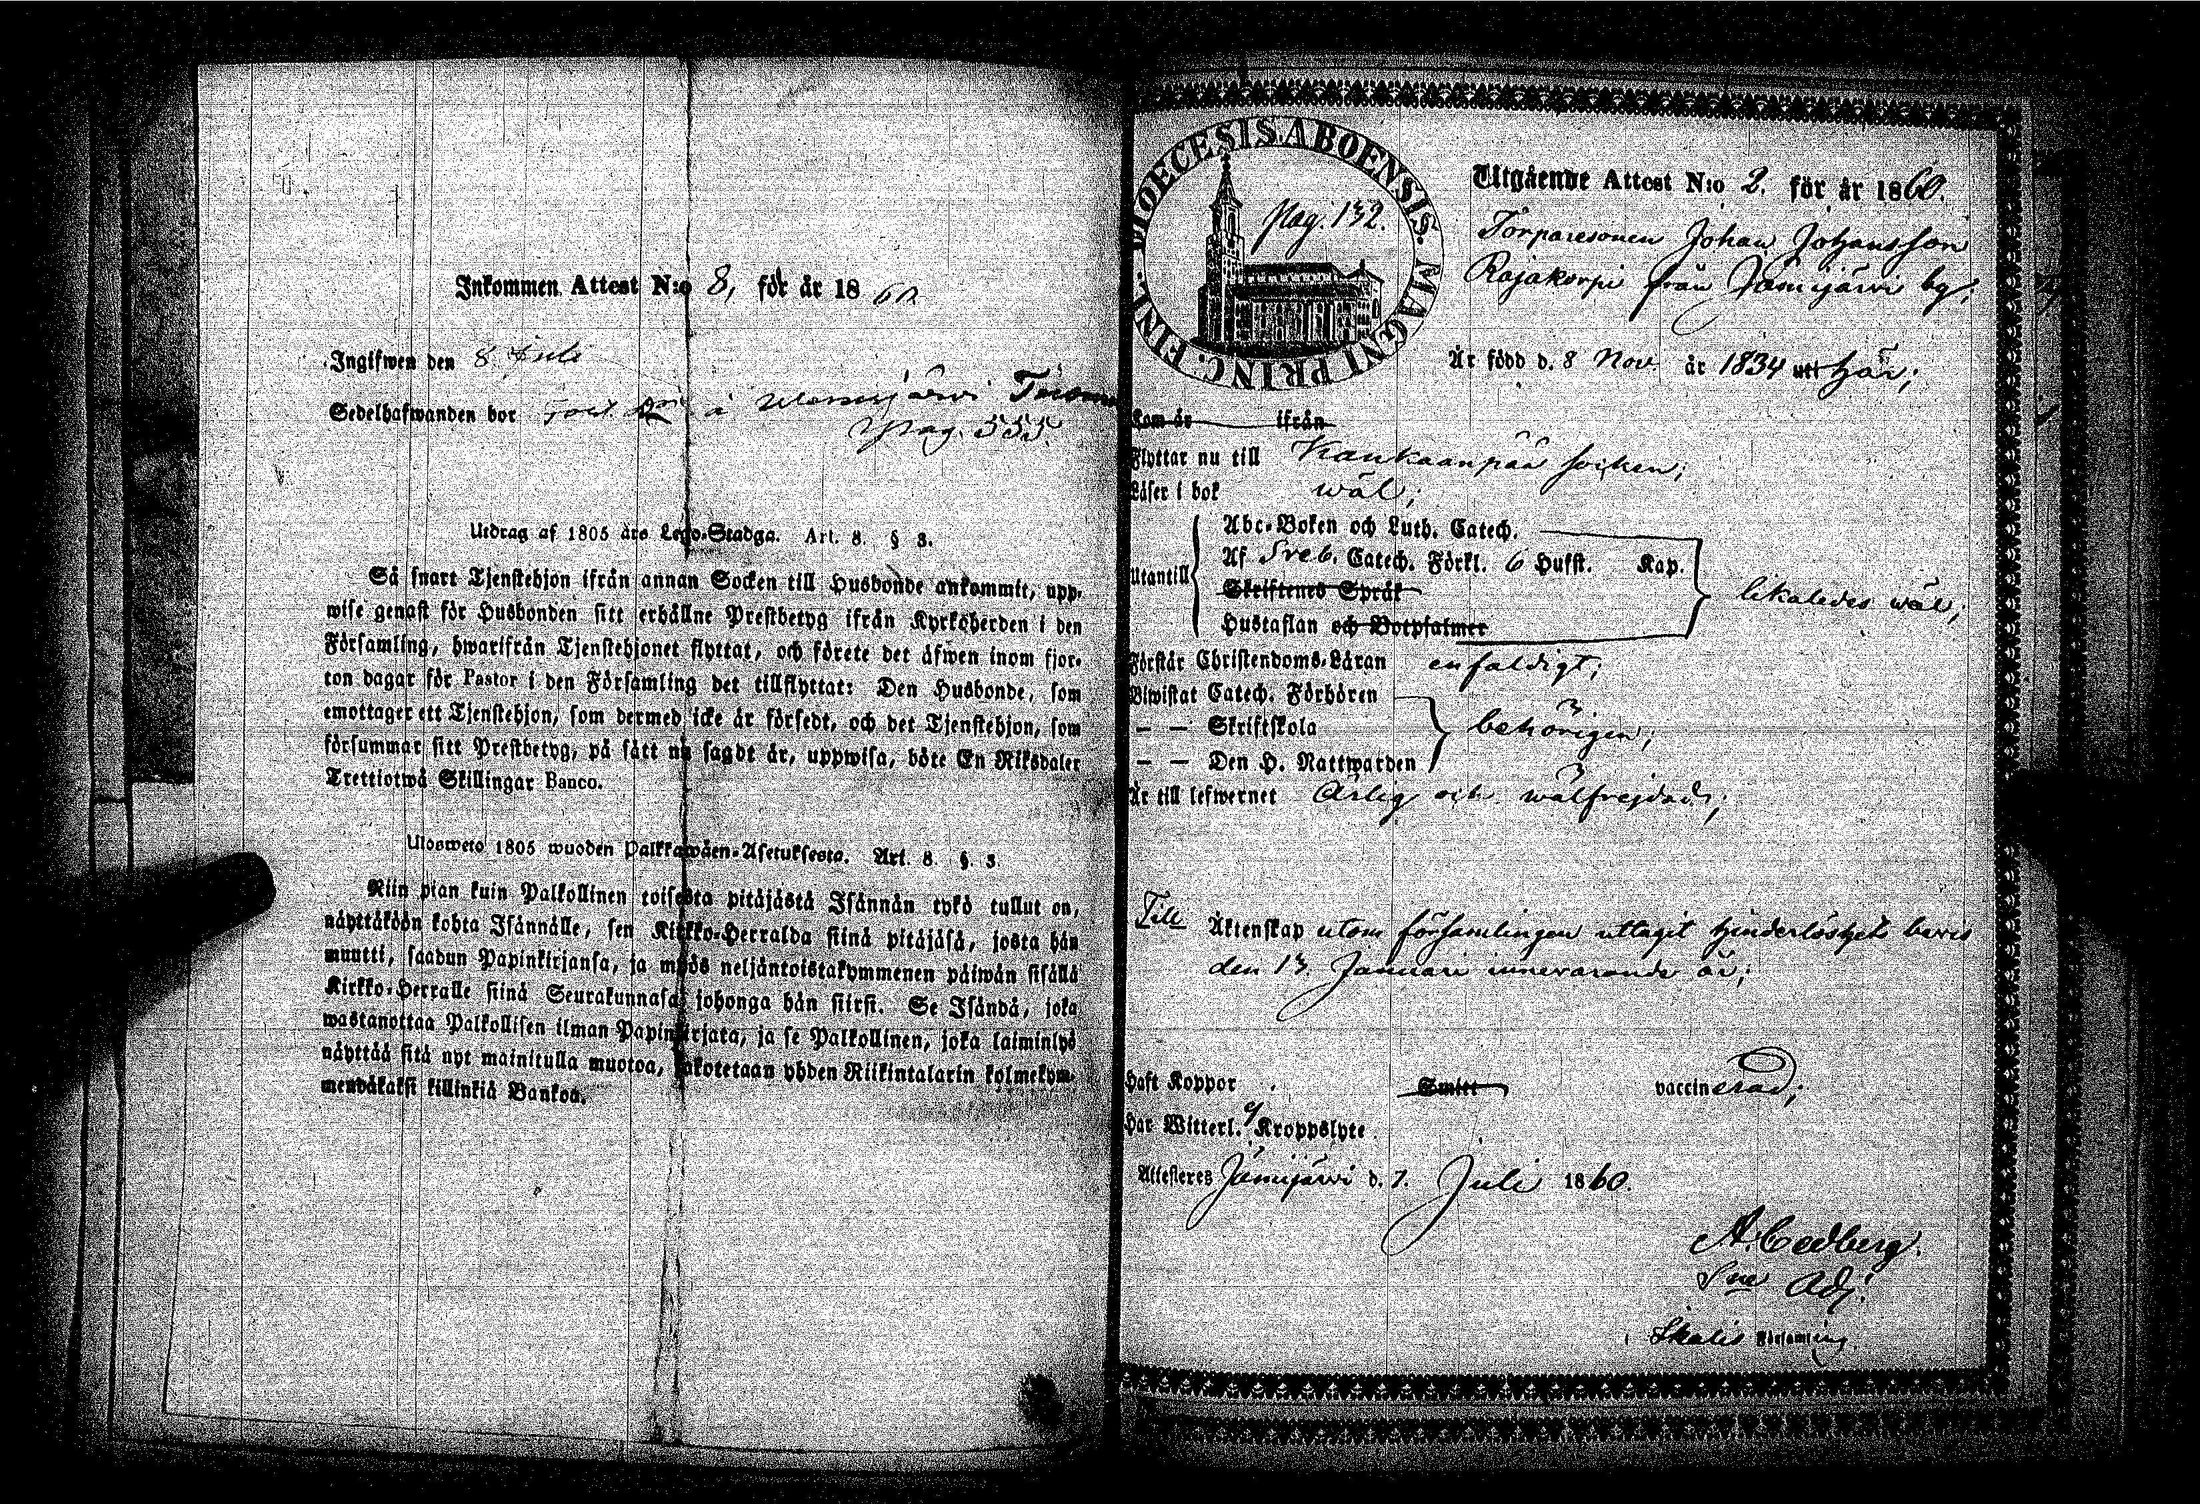 Inkommen Attest N:o 8, för år 1860.
Ingifwen den 8 Juli
Sedelhafwanden bor å
Pag. 555.
Utdrag af 1805 års Lego-Stadga. Art. 8. § 3.
Så snart Tjenstehjon ifrån annan Socken till Husbonde ankommit, upp-
wise genast för Husbonden sitt erhållne Prestbetyg ifrån Kyrkoherden i den
Församling, hwarifrån Tjenstehjonet flyttat, och förete det äfwen inom fjor-
ton dagar för Pastor i den Församling det tillflyttat: Den Husbonde, som
emottager ett Tjenstehjon, som dermed icke är försedt, och det Tjenstehjon, som
försummar sitt Prestbetyg, på sätt nu sagdt är, uppwisa, böte En Riksdaler
Trettiotwå Skillingar Banco.
Ulosweto 1805 wuoden Palkkawäen-Asetuksesta. Art. 8. §. 3
Niin pian kuin Palkollinen toisesta pitäjästä Isännän tykö tullut on,
näyttäköön kohta Isännälle, sen Kirkko-Herralda siinä pitäjäsä, josta hän
muutti, saadun Papinkirjansa, ja myös neljäntoistakymmenen päiwän sisällä
Kirkko-Herralle siinä Seurakunnasa, johonga hän siirsi. Se Isändä, joka
wastanottaa Palkollisen ilman Papinkirjata, ja se Palkollinen, joka laiminlyö
näyttää sitä nyt mainitulla muotoa, sakotetaan yhden Riikintalarin kolmekym-
mendäkaksi killinkiä Bankoa.
DIOECESIS ABOENSIS. MAGNI PRINC. FINL.
Pag. 132.
Utgående Attest N:o 2. för år 1860.
Torparesonen Johan Johansson
Rajakorpi från Jämijärvi by;
Är född d. 8 Nov. år 1834 uti här;
Kom år ifrån
Flyttar nu till Kankaanpää socken;
Läser i bok wäl;
Utantill
Abc-Boken och Luth. Catech.
Af Sveb. Catech. Förkl. 6 Hufst. Kap.
Skriftenes Språk
Hustaflan och Botpsalmer
likaledes wäl;
Förstår Christendoms-Läran enfaldigt;
Biwistat Catech. Förhören
— — Skriftskola
— — Den H. Nattwarden
behörigen;
Är till lefwernet Ärlig och wälfrejdad;
Till Äktenskap utom församlingen uttagit hinderlöshets bevis
den 13 Januari innevarande år;
Haft Koppor Smitt vaccinerad;
Har Witterl. Kroppslyte
Attesteres Jämijärvi d. 7. Juli 1860.
A. Cedberg.
Sne Adj.
i Ikalis Församling.